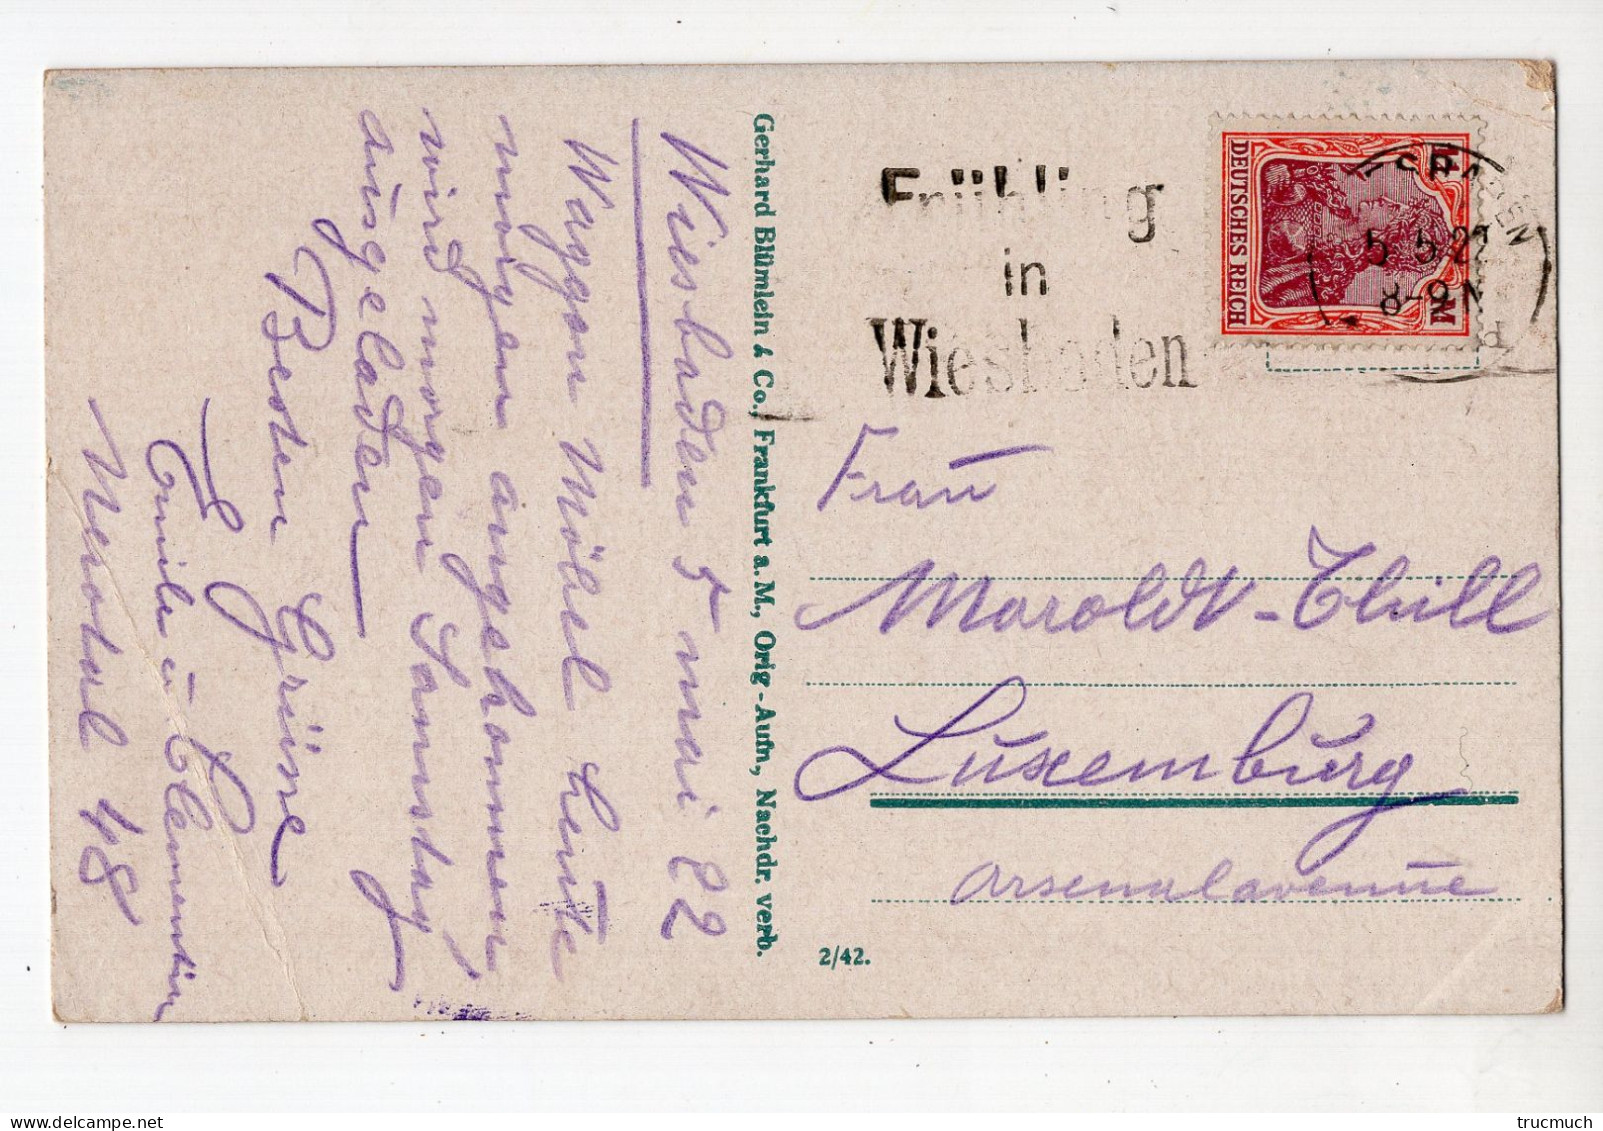 Wiesbaden 5 mai 22
Waggon Möbel heute
morgen angekommen,
wird morgen Samstag
ausgeladen
Besten Grüsse
Emile u. Clementine
Nerotal 48
Gerhard Blümlein & Co., Frankfurt a. M., Orig-Aufn., Nachdr. verb.
Frühling
in
Wiesbaden
DEUTSCHES REICH
5 5.22
8-9 N
Frau
Maroldt-Thill
Luxemburg
Arsenalavenue
2/42.
trucmuch